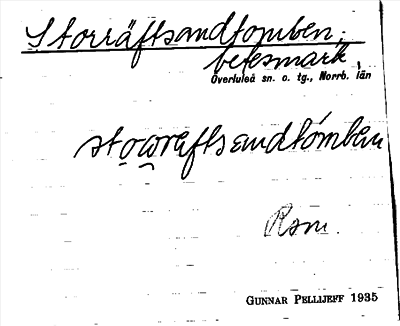 Storräftsandtomben,
betesmark,
Överluleå sn. o. tg., Norrb. län
stoωräftsandtómben
Rsm.
GUNNAR PELLIJEFF 1935